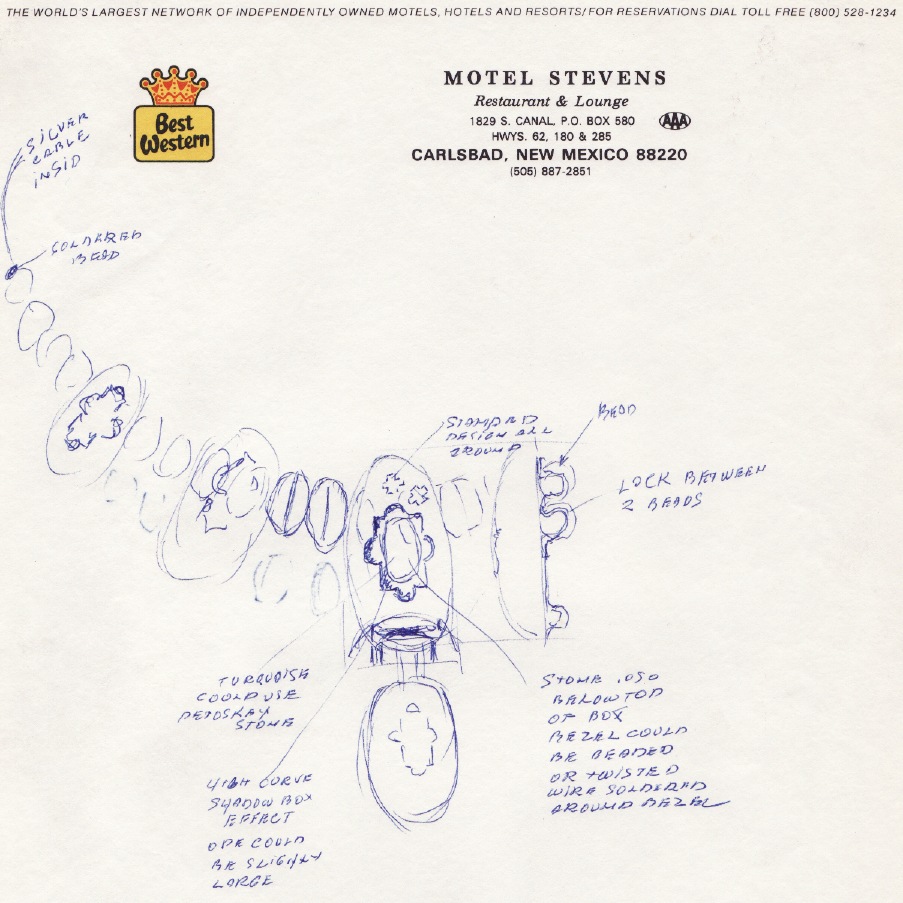 THE WORLD'S LARGEST NETWORK OF INDEPENDENTLY OWNED MOTELS, HOTELS AND RESORTS/FOR RESERVATIONS DIAL TOLL FREE (800) 528-1234
Best
Western
MOTEL STEVENS
Restaurant & Lounge
1829 S. CANAL, P.O. BOX 580
AAA
HWYS. 62, 180 & 285
CARLSBAD, NEW MEXICO 88220
(505) 887-2851
SILVER
CABLE
INSID
SOLDERED
BEAD
STAMPED
DESIGN ALL
AROUND
BEAD
LOCK BETWEEN
2 BEADS
TURQUOISE
COULD USE
PETOSKEY
STONE
HIGH CURVE
SHADOW BOX
EFFECT
COULD
BE SLIGHLY
LARGE
STONE .050
BELOW TOP
OF BOX
BEZEL COULD
BE BEADED
OR TWISTED
WIRE SOLDERED
AROUND BEZEL